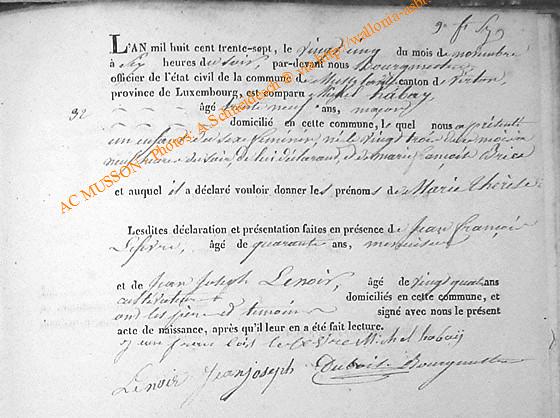 L'AN mil huit cent trente-sept, le vingt cinq du mois de novembre
à six heures du soir, par-devant nous Bourgmestre
officier de l'état civil de la commune de canton de Virton,
province de Luxembourg, est comparu Michel habay
32 âgé trente neuf ans, maçon
domicilié en cette commune, lequel nous a présenté
un enfant du sexe féminin né le vingt trois
neuf heures du soir, de lui déclarant, et de marie Brice
et auquel il a déclaré vouloir donner les prénoms de Marie thérèse
Lesdites déclaration et présentation faites en présence de Jean françois
Lefèvre, âgé de quarante ans, menuisier
et de Jean Joseph Lenoir, âgé de vingt quatre ans
cultivateur domiciliés en cette commune, et
ont les père et témoins signé avec nous le présent
acte de naissance, après qu'il leur en a été fait lecture.
Michel habaÿ
Lenoir Jean joseph Dubois Bourgmestre
AC MUSSON - Photos: A.Schneidesch © via http://wallonia-asbl